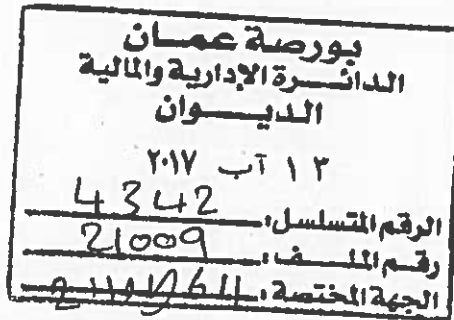 بورصة عمان
الدائرة الإدارية والمالية
الديوان
١٣ آب ٢٠١٧
الرقم المتسلسل: 4342
رقم الملف: 21009
الجهة المختصة: